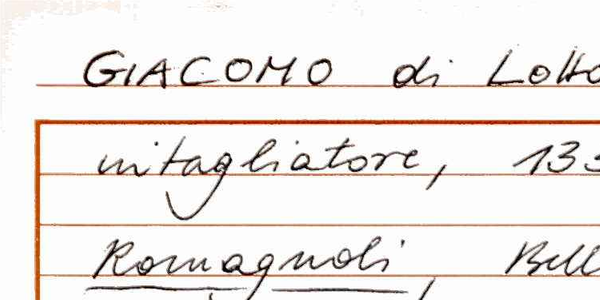 GIACOMO di Lotto
intagliatore, 133
Romagnoli, Bell